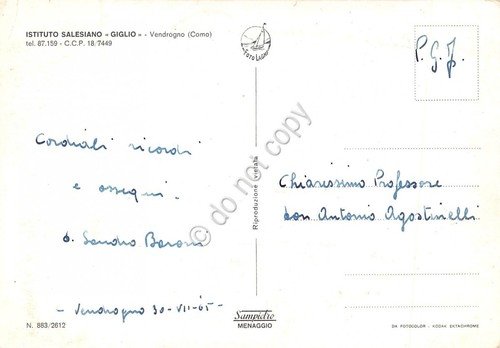 ISTITUTO SALESIANO « GIGLIO » - Vendrogno (Como)
tel. 87.159 - C.C.P. 18/7449
FOTO LARIO
P.G.F.
Cordiali ricordi
e ossequi.
d. Sandro Baroni
- Vendrogno 30-VII-65 -
© do not copy
Riproduzione vietata
Chiarissimo Professore
don Antonio Agostinelli
N. 883/2612
Sampietro
MENAGGIO
DA FOTOCOLOR - KODAK EKTACHROME